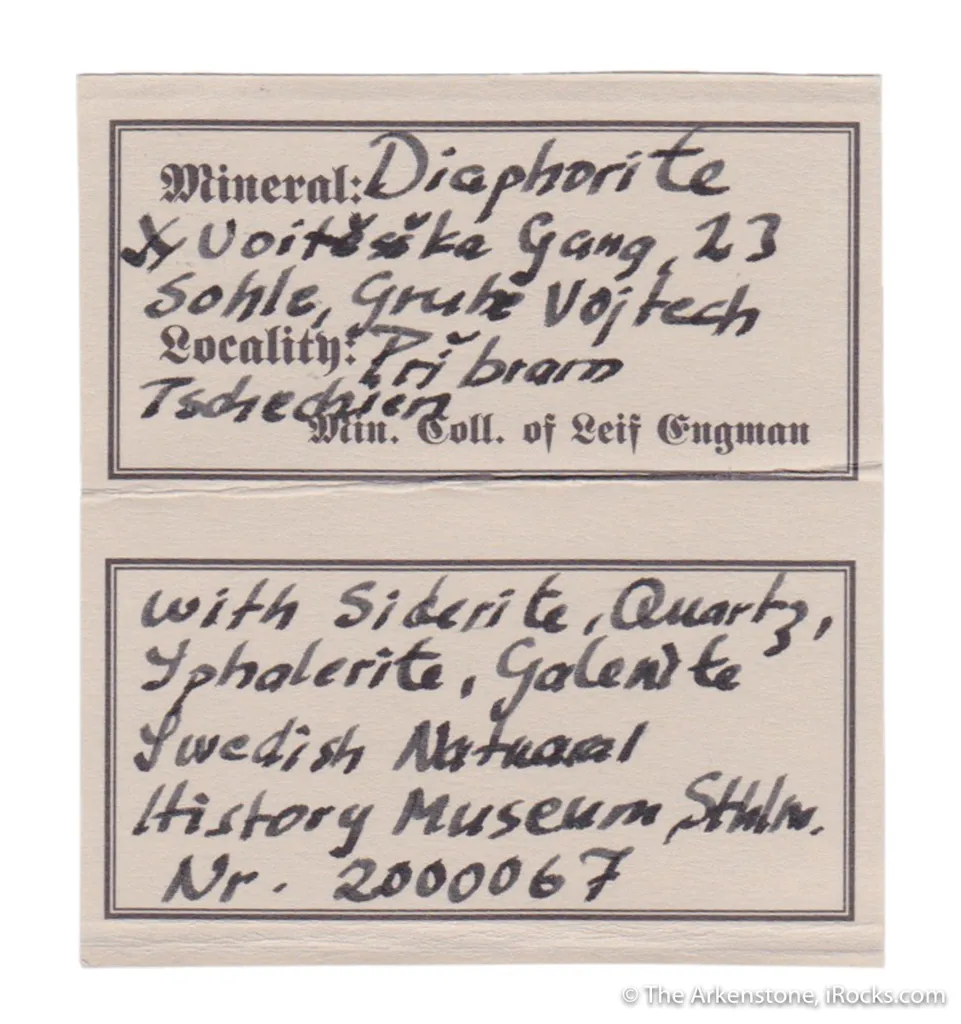 Mineral: Diaphorite
X Voitěška Gang, 23
Sohle, Grube Vojtech
Locality: Příbram
Tschechien
Min. Coll. of Leif Engman
with Siderite, Quartz,
Sphalerite, Galenite
Swedish Natural
History Museum, Sthlm.
Nr. 2000067
© The Arkenstone, iRocks.com